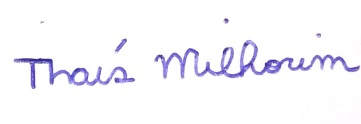 Thaís Milhorim